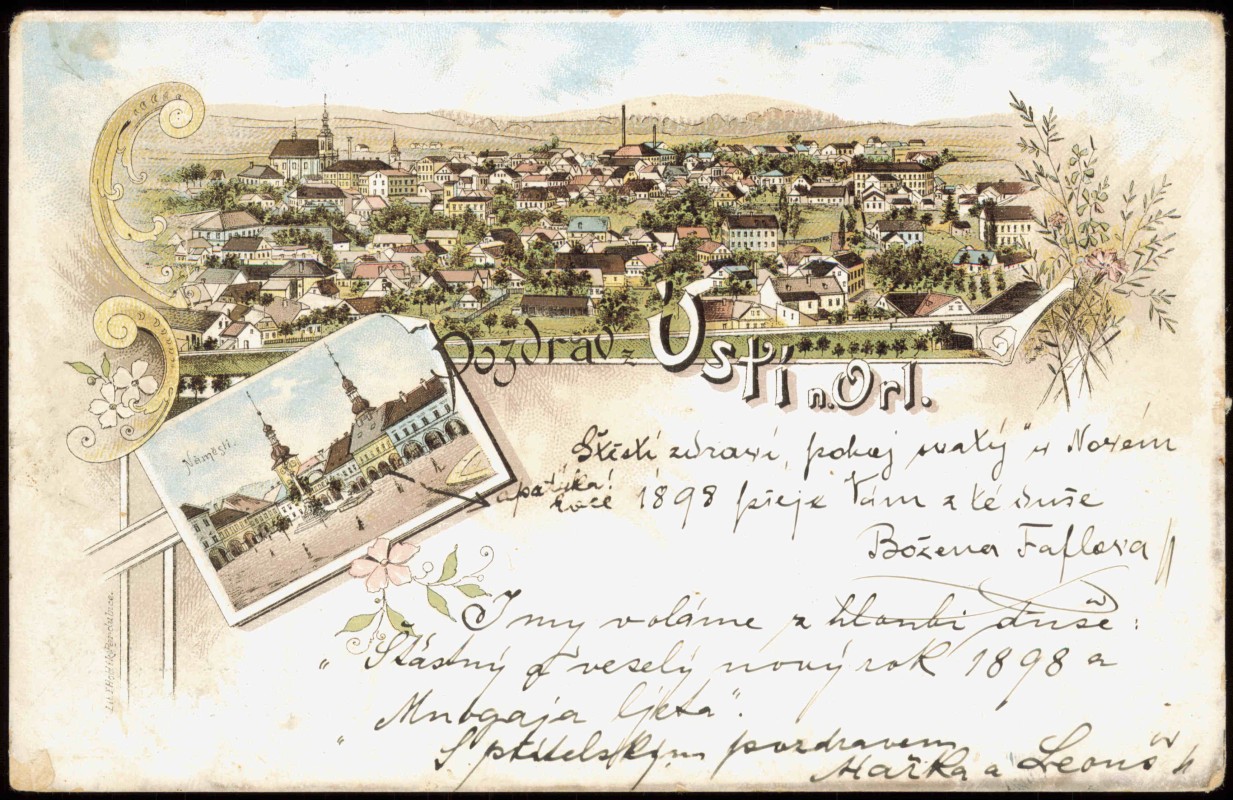 Pozdrav z Ústí n. Orl.
Náměstí.
Štěstí zdraví, pokoj svatý" v Novém
apatyka!
roce 1898 přeje Vám z té duše
Božena Faflova
I my voláme z hloubi duše:
"Šťastný a veselý nový rok 1898 a
Mnogaja ljeta".
S přátelským pozdravem
Mařka a Leoni